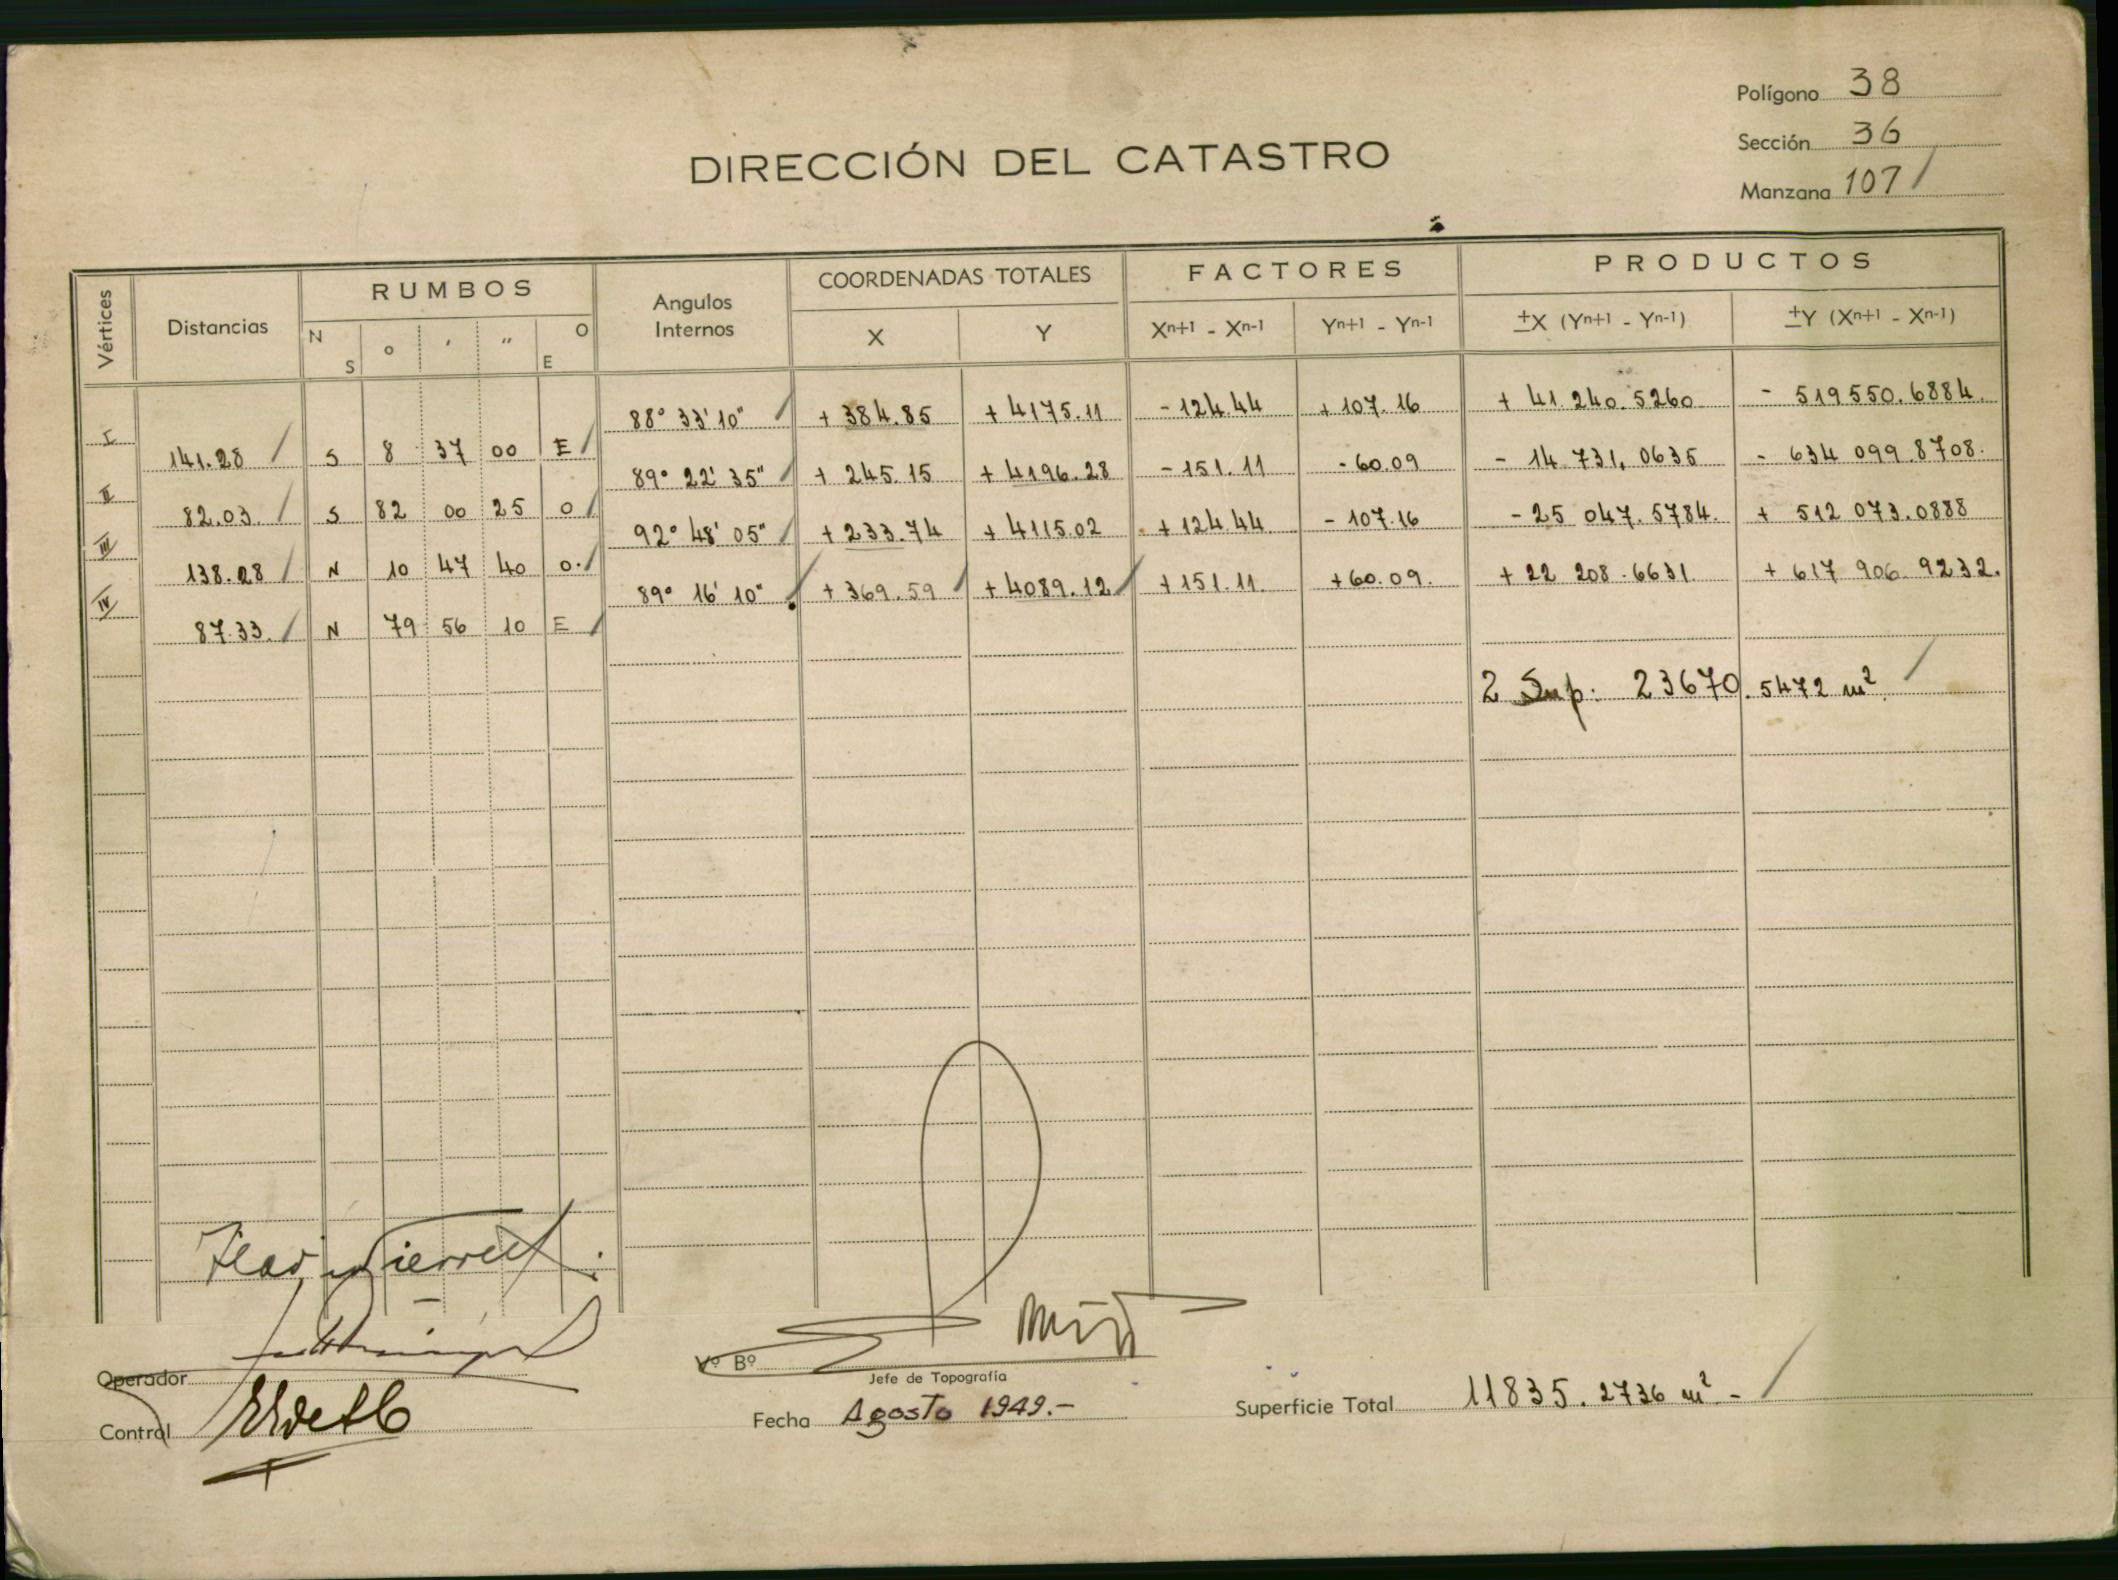 Polígono 38
Sección 36
Manzana 107
DIRECCIÓN DEL CATASTRO
Vértices Distancias RUMBOS Angulos Internos COORDENADAS TOTALES FACTORES PRODUCTOS
N S o ' " O E X Y Xn+1 - Xn-1 Yn+1 - Yn-1 ±X (Yn+1 - Yn-1) ±Y (Xn+1 - Xn-1)
88° 33' 10" + 384.85 + 4175.11 - 124.44 + 107.16 + 41.240.5260 - 519550.6884.
I 141.28 S 8 37 00 E
89° 22' 35" + 245.15 + 4196.28 - 151.11 - 60.09 - 14.731.0635 - 634 099.8708.
II 82.03. S 82 00 25 O
92° 48' 05" + 233.74 + 4115.02 + 124.44 - 107.16 - 25 047.5784. + 512 073.0888
III 138.28 N 10 47 40 O.
89° 16' 10" + 369.59 + 4089.12 + 151.11. + 60.09. + 22 208.6631. + 617 906.9232.
IV 87.33. N 79 56 10 E
2 Sup: 23670.5472 m²
Operador
Vº Bº
Jefe de Topografía
Control
Fecha Agosto 1949.-
Superficie Total 11835.2736 m² -